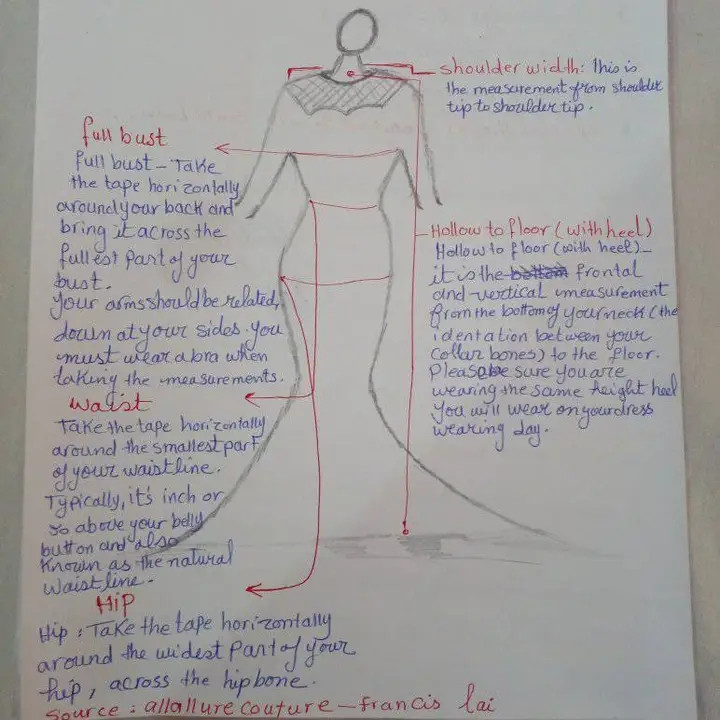 shoulder width: This is
the measurement from shoulder
tip to shoulder tip.
full bust
full bust – Take
the tape horizontally
around your back and
bring it across the
fullest part of your
bust.
Your arms should be related,
down at your sides. You
must wear a bra when
taking the measurements.
Waist
Take the tape horizontally
around the smallest part
of your waistline.
Typically, it's inch or
so above your belly
button and also
Known as the natural
Waistline.
Hip
Hip : Take the tape horizontally
around the widest part of your
hip, across the hipbone.
Hollow to floor (with heel)
Hollow to floor (with heel) –
it is the bottom frontal
and vertical measurement
from the bottom of your neck (the
identation between your
collar bones) to the floor.
Please be sure you are
wearing the same height heel
You will wear on your dress
wearing day.
Source : allallure couture – francis lai